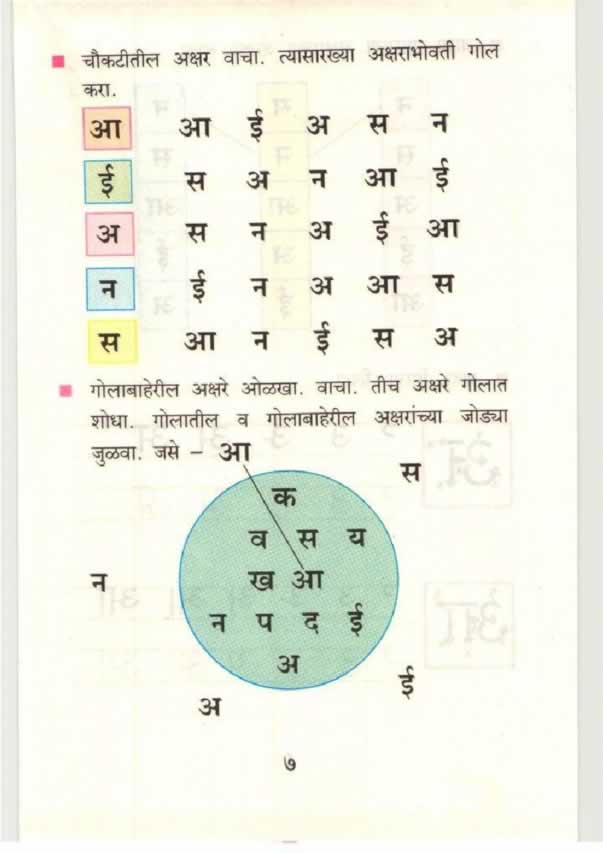 चौकटीतील अक्षर वाचा. त्यासारख्या अक्षराभोवती गोल
करा.
आ आ ई अ स न
ई स अ न आ ई
अ स न अ ई आ
न ई न अ आ स
स आ न ई स अ
गोलाबाहेरील अक्षरे ओळखा. वाचा. तीच अक्षरे गोलात
शोधा. गोलातील व गोलाबाहेरील अक्षरांच्या जोड्या
जुळवा. जसे – आ
स
क
व स य
न ख आ
न प द ई
अ
ई
अ
७